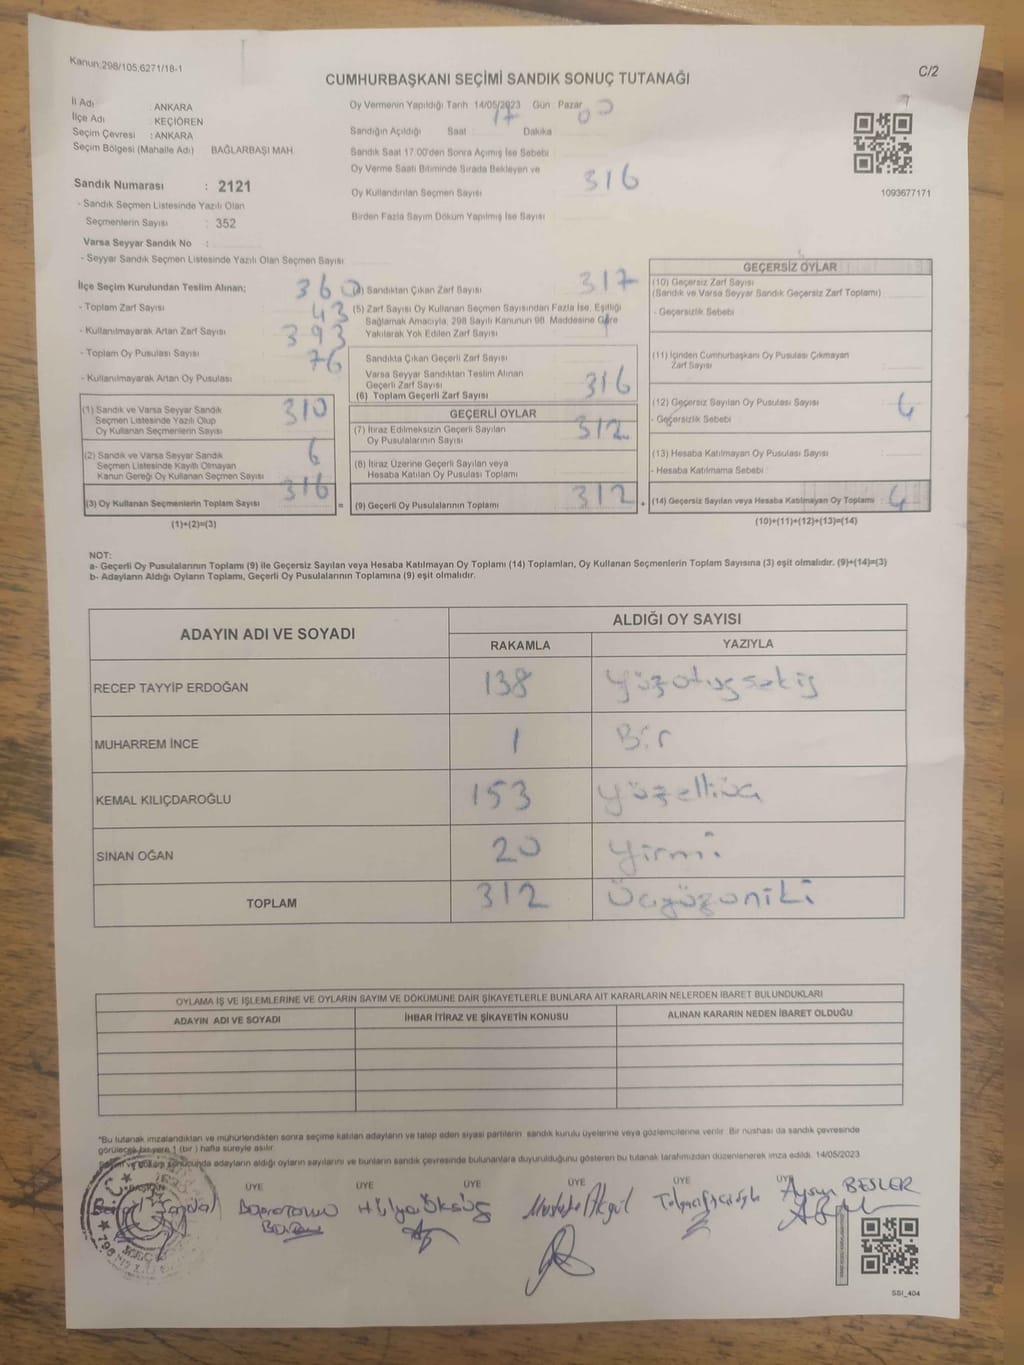 Kanun:298/105,6271/18-1
CUMHURBAŞKANI SEÇİMİ SANDIK SONUÇ TUTANAĞI
C/2
İl Adı : ANKARA
İlçe Adı : KEÇİÖREN
Seçim Çevresi : ANKARA
Seçim Bölgesi (Mahalle Adı) BAĞLARBAŞI MAH.
Sandık Numarası : 2121
- Sandık Seçmen Listesinde Yazılı Olan
Seçmenlerin Sayısı : 352
Varsa Seyyar Sandık No :
- Seyyar Sandık Seçmen Listesinde Yazılı Olan Seçmen Sayısı:
Oy Vermenin Yapıldığı Tarih 14/05/2023 Gün : Pazar
Sandığın Açıldığı Saat 17 Dakika 00
Sandık Saat 17:00'den Sonra Açımış İse Sebebi
Oy Verme Saati Bitiminde Sırada Bekleyen ve
Oy Kullandırılan Seçmen Sayısı 316
Birden Fazla Sayım Döküm Yapılmış İse Sayısı
1093677171
İlçe Seçim Kurulundan Teslim Alınan;
- Toplam Zarf Sayısı 360
- Kullanılmayarak Artan Zarf Sayısı 43
- Toplam Oy Pusulası Sayısı 393
- Kullanılmayarak Artan Oy Pusulası 76
(1) Sandık ve Varsa Seyyar Sandık
Seçmen Listesinde Yazılı Olup
Oy Kullanan Seçmenlerin Sayısı 310
(2) Sandık ve Varsa Seyyar Sandık
Seçmen Listesinde Kayıtlı Olmayan
Kanun Gereği Oy Kullanan Seçmen Sayısı 6
(3) Oy Kullanan Seçmenlerin Toplam Sayısı 316 =
(1)+(2)=(3)
Sandıktan Çıkan Zarf Sayısı 317
(5) Zarf Sayısı Oy Kullanan Seçmen Sayısından Fazla İse, Eşitliği
Sağlamak Amacıyla, 298 Sayılı Kanunun 98. Maddesine Göre
Yakılarak Yok Edilen Zarf Sayısı 1
Sandıkta Çıkan Geçerli Zarf Sayısı
Varsa Seyyar Sandıktan Teslim Alınan
Geçerli Zarf Sayısı
(6) Toplam Geçerli Zarf Sayısı 316
GEÇERLİ OYLAR
(7) İtiraz Edilmeksizin Geçerli Sayılan
Oy Pusulalarının Sayısı 312
(8) İtiraz Üzerine Geçerli Sayılan veya
Hesaba Katılan Oy Pusulası Toplamı
(9) Geçerli Oy Pusulalarının Toplamı 312 +
GEÇERSİZ OYLAR
(10) Geçersiz Zarf Sayısı
(Sandık ve Varsa Seyyar Sandık Geçersiz Zarf Toplamı)
- Geçersizlik Sebebi
(11) İçinden Cumhurbaşkanı Oy Pusulası Çıkmayan
Zarf Sayısı
(12) Geçersiz Sayılan Oy Pusulası Sayısı 4
- Geçersizlik Sebebi
(13) Hesaba Katılmayan Oy Pusulası Sayısı
- Hesaba Katılmama Sebebi
(14) Geçersiz Sayılan veya Hesaba Katılmayan Oy Toplamı : 4
(10)+(11)+(12)+(13)=(14)
NOT:
a- Geçerli Oy Pusulalarının Toplamı (9) ile Geçersiz Sayılan veya Hesaba Katılmayan Oy Toplamı (14) Toplamları, Oy Kullanan Seçmenlerin Toplam Sayısına (3) eşit olmalıdır. (9)+(14)=(3)
b- Adayların Aldığı Oyların Toplamı, Geçerli Oy Pusulalarının Toplamına (9) eşit olmalıdır.
ADAYIN ADI VE SOYADI
ALDIĞI OY SAYISI
RAKAMLA YAZIYLA
RECEP TAYYİP ERDOĞAN 138 Yüzotuzsekiz
MUHARREM İNCE 1 Bir
KEMAL KILIÇDAROĞLU 153 yüzelliüç
SİNAN OĞAN 20 Yirmi
TOPLAM 312 Üçyüzoniki
OYLAMA İŞ VE İŞLEMLERİNE VE OYLARIN SAYIM VE DÖKÜMÜNE DAİR ŞİKAYETLERLE BUNLARA AİT KARARLARIN NELERDEN İBARET BULUNDUKLARI
ADAYIN ADI VE SOYADI İHBAR İTİRAZ VE ŞİKAYETİN KONUSU ALINAN KARARIN NEDEN İBARET OLDUĞU
*Bu tutanak imzalandıktan ve mühürlendikten sonra seçime katılan adayların ve talep eden siyasi partilerin sandık kurulu üyelerine veya gözlemcilerine verilir. Bir nüshası da sandık çevresinde
görülecek bir yere 1 (bir ) hafta süreyle asılır.
Sayım ve döküm sonucunda adayların aldığı oyların sayılarını ve bunların sandık çevresinde bulunanlara duyurulduğunu gösteren bu tutanak tarafımızdan düzenlenerek imza edildi. 14/05/2023
BAŞKAN ÜYE ÜYE ÜYE ÜYE ÜYE
Hülya Öksüz Mustafa Akgül Aysun BESLER
SSI_404